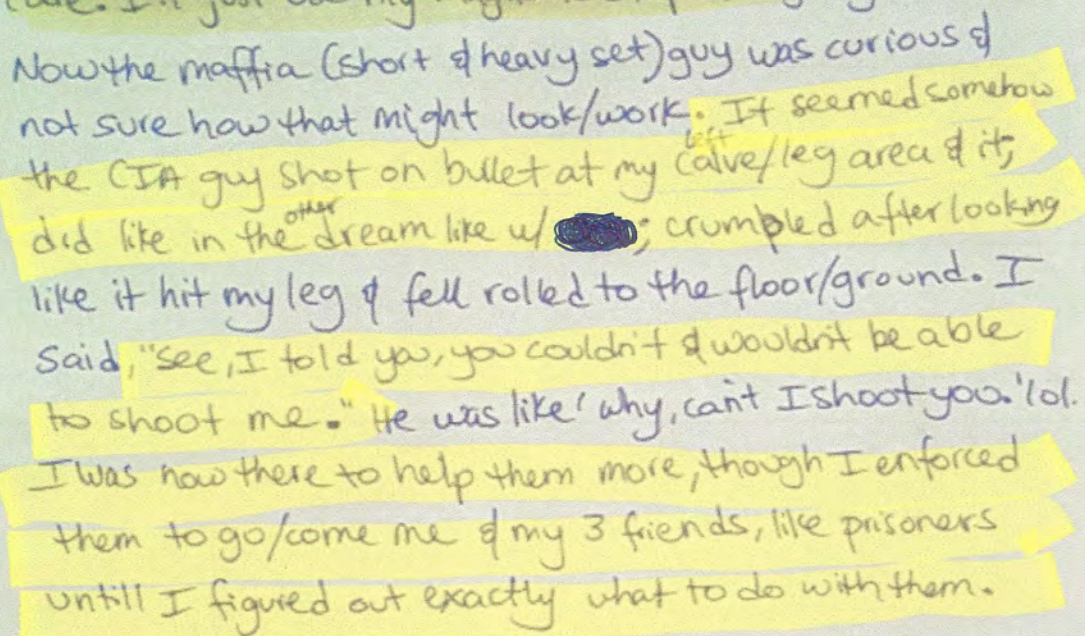 Now the maffia (short & heavy set) guy was curious &
not sure how that might look/work. It seemed somehow
the CIA guy shot on bullet at my left calve/leg area & it;
did like in the other dream like w/ ; crumpled after looking
like it hit my leg & fell rolled to the floor/ground. I
said, "see, I told you, you couldn't & wouldn't be able
to shoot me." He was like 'why, can't I shoot you.' lol.
I was now there to help them more, though I enforced
them to go/come me & my 3 friends, like prisoners
untill I figured out exactly what to do with them.